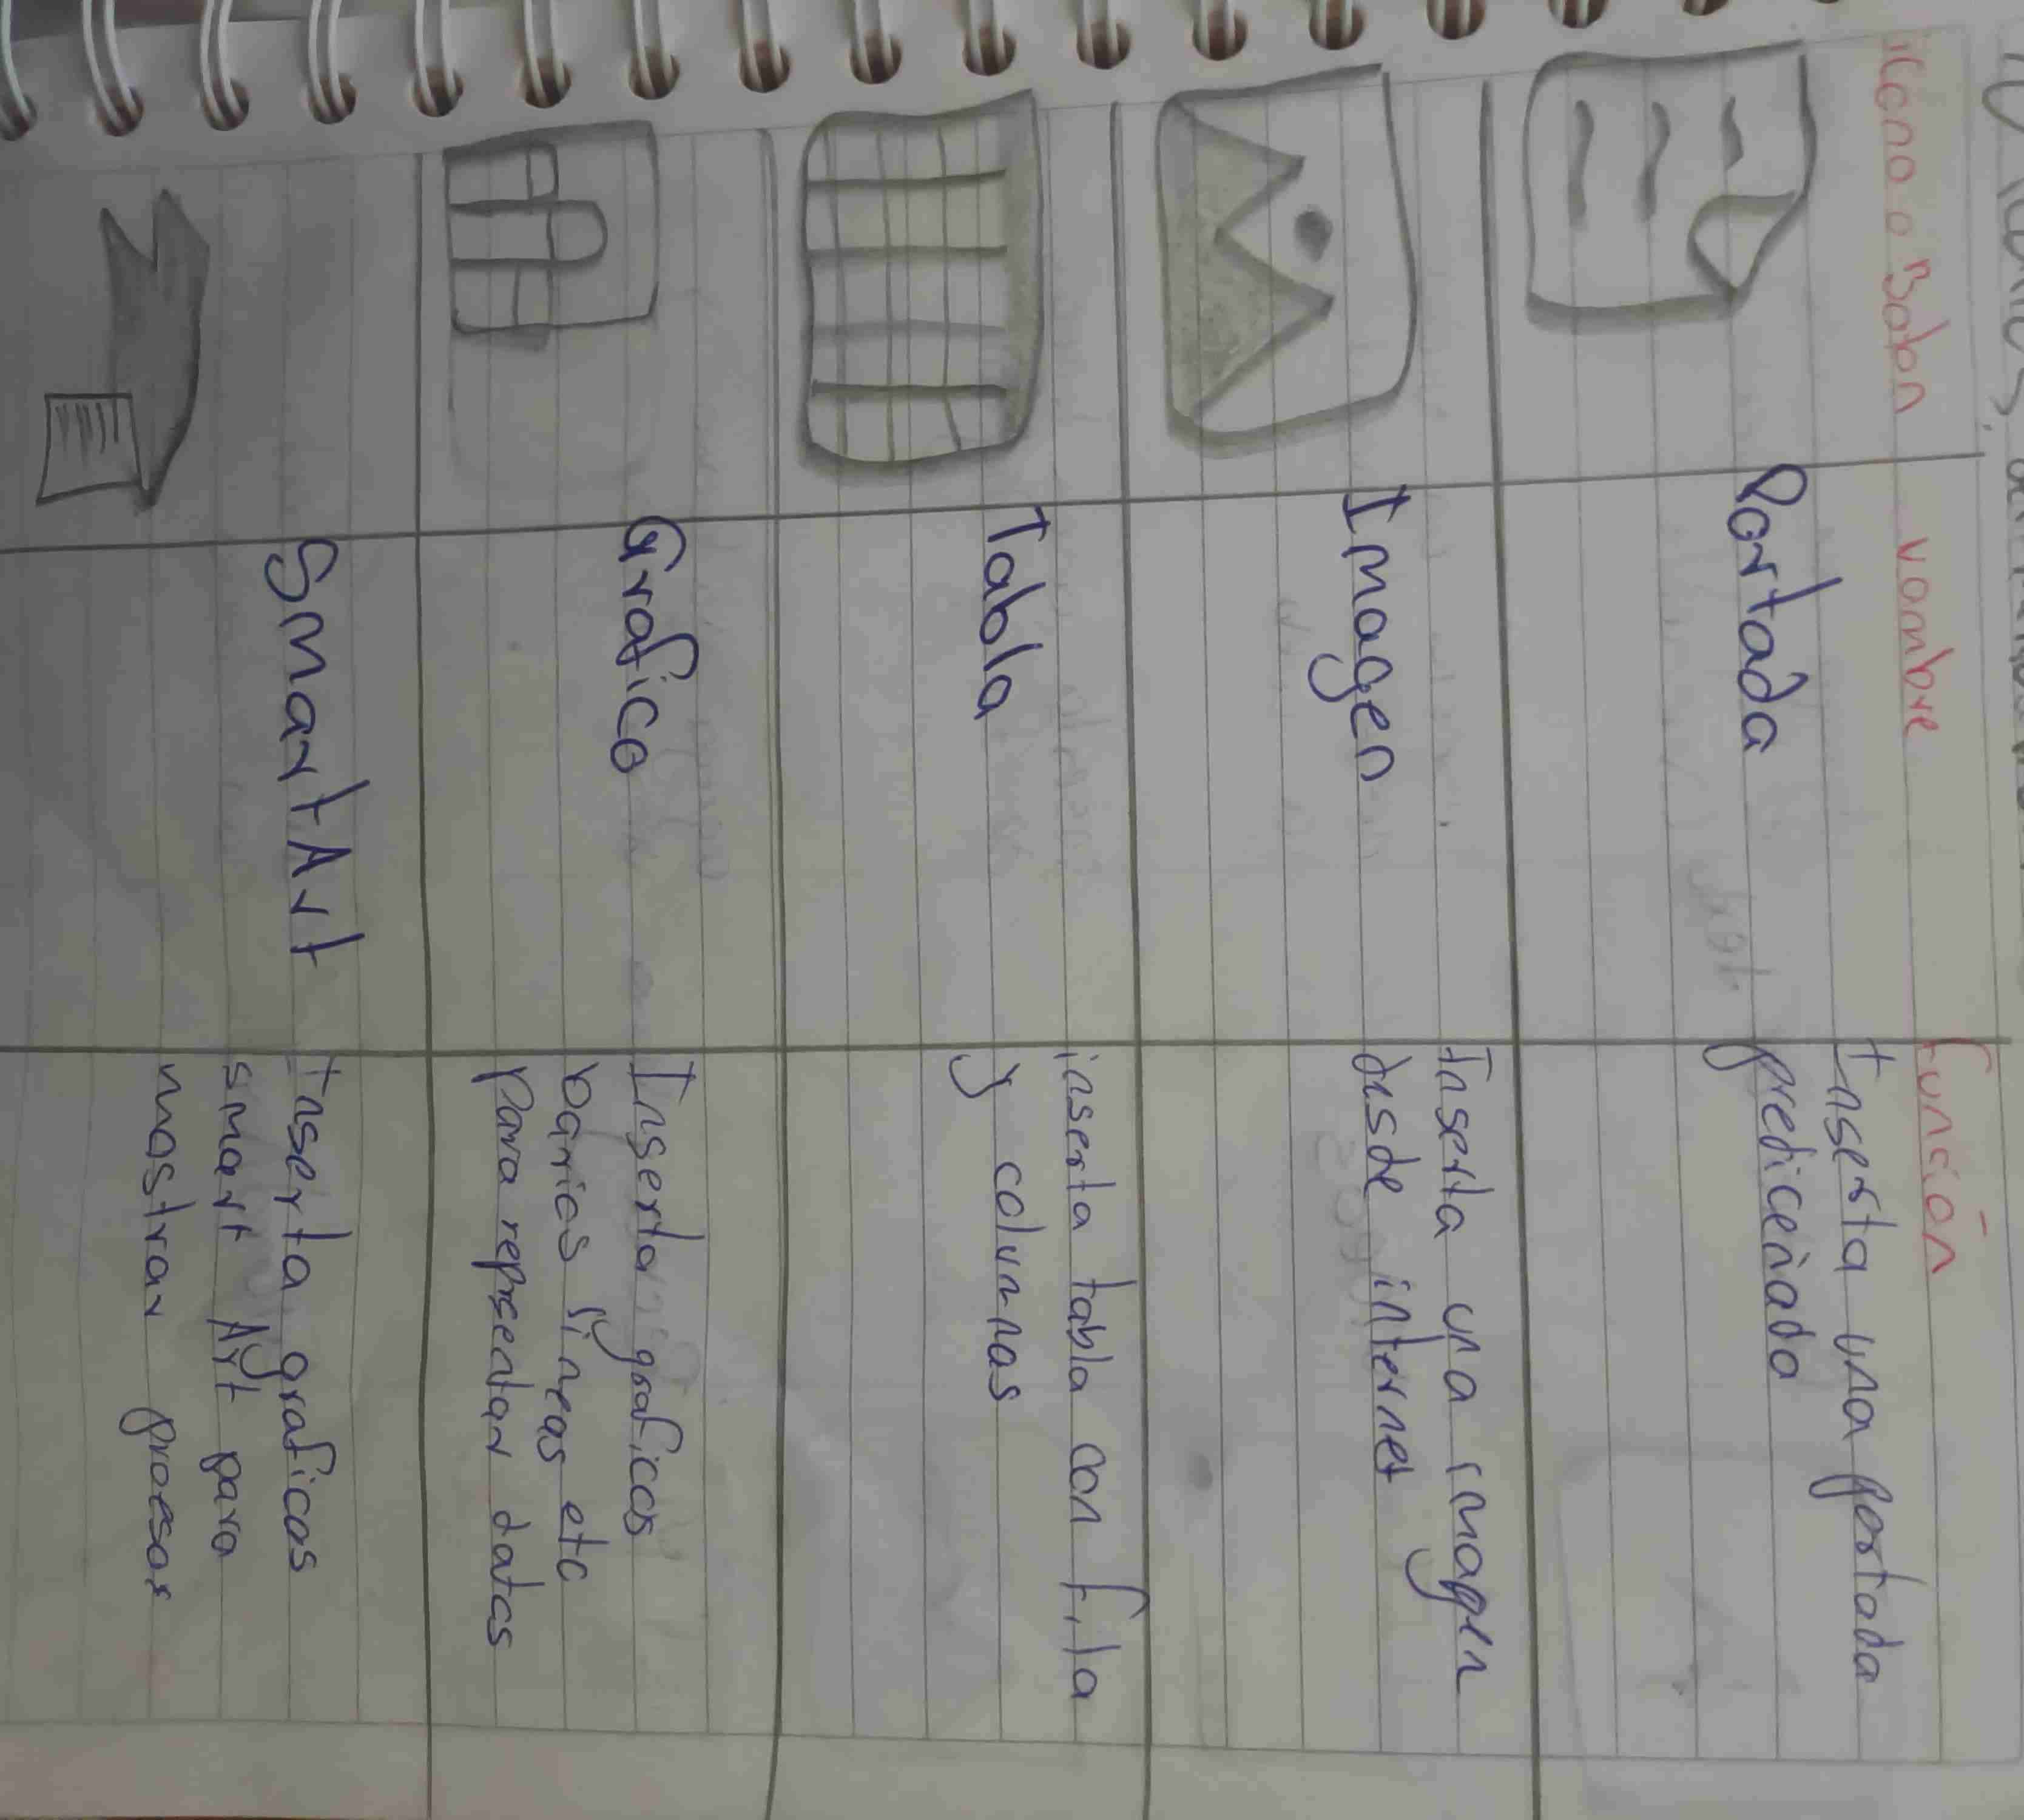 icono o Boton vombre función
Portada Inserta una portada
prediceñada
Imagen Inserta una imagen
desde internet
Tabla inserta tabla con fila
y columnas
Grafico Inserta graficos
baries lineas etc
para representar datos
SmartArt Inserta graficos
smart Art para
mostrar procesos